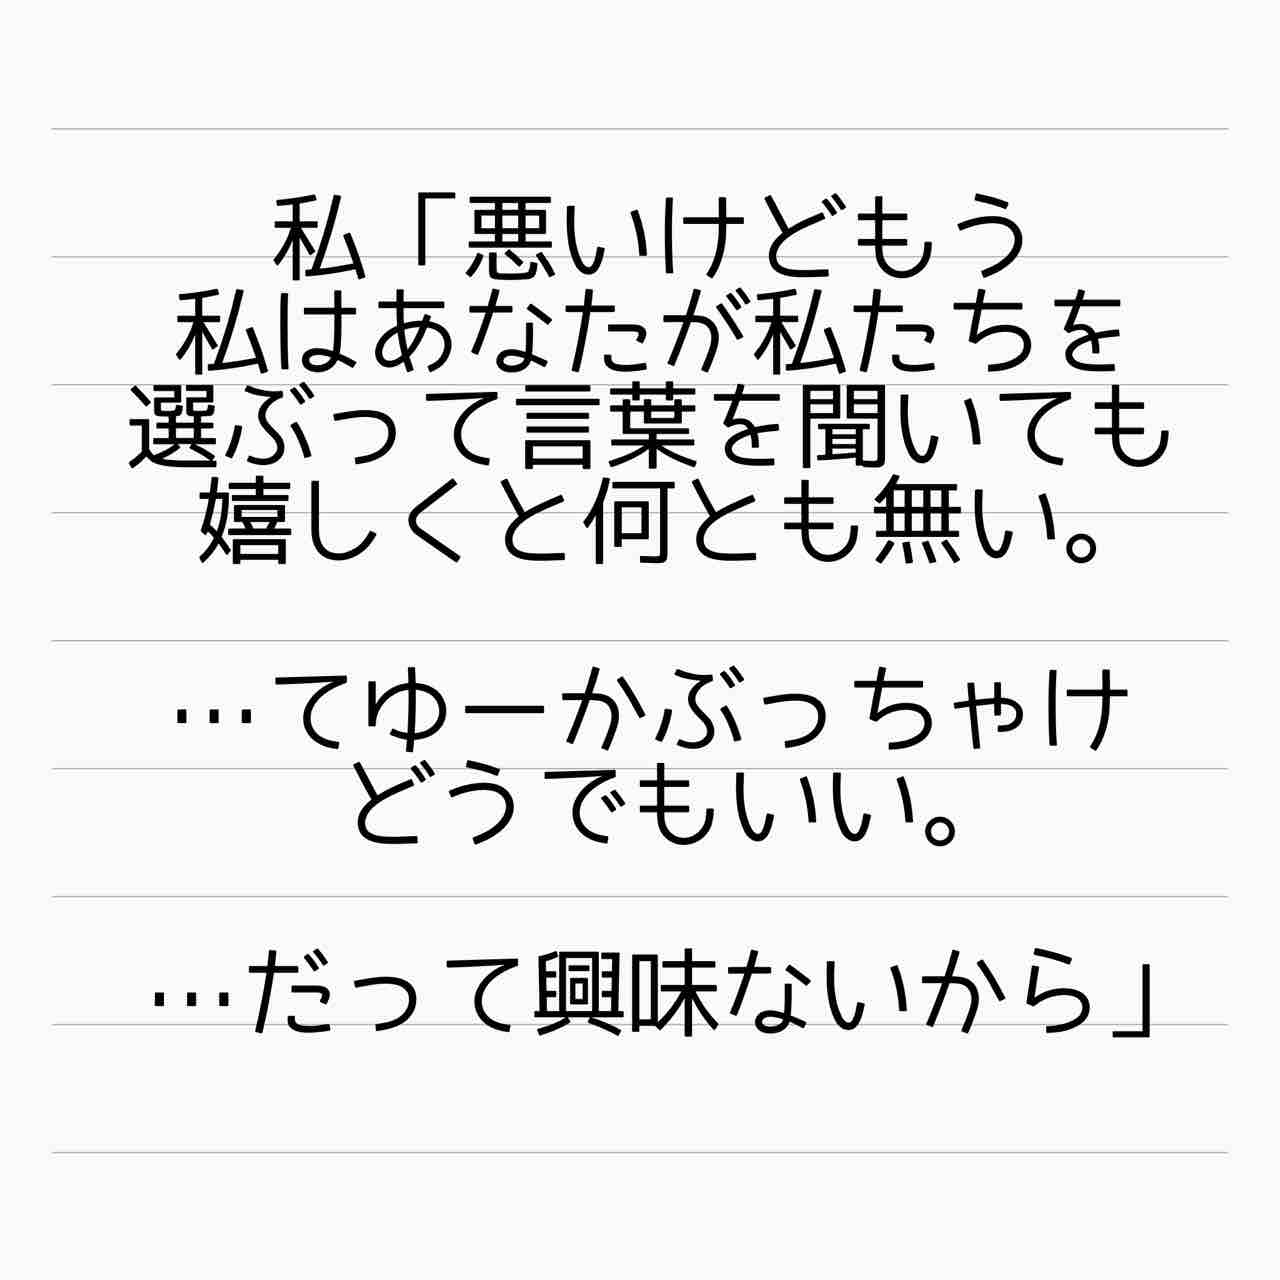 私「悪いけどもう
私はあなたが私たちを
選ぶって言葉を聞いても
嬉しくと何とも無い。
…てゆーかぶっちゃけ
どうでもいい。
…だって興味ないから」